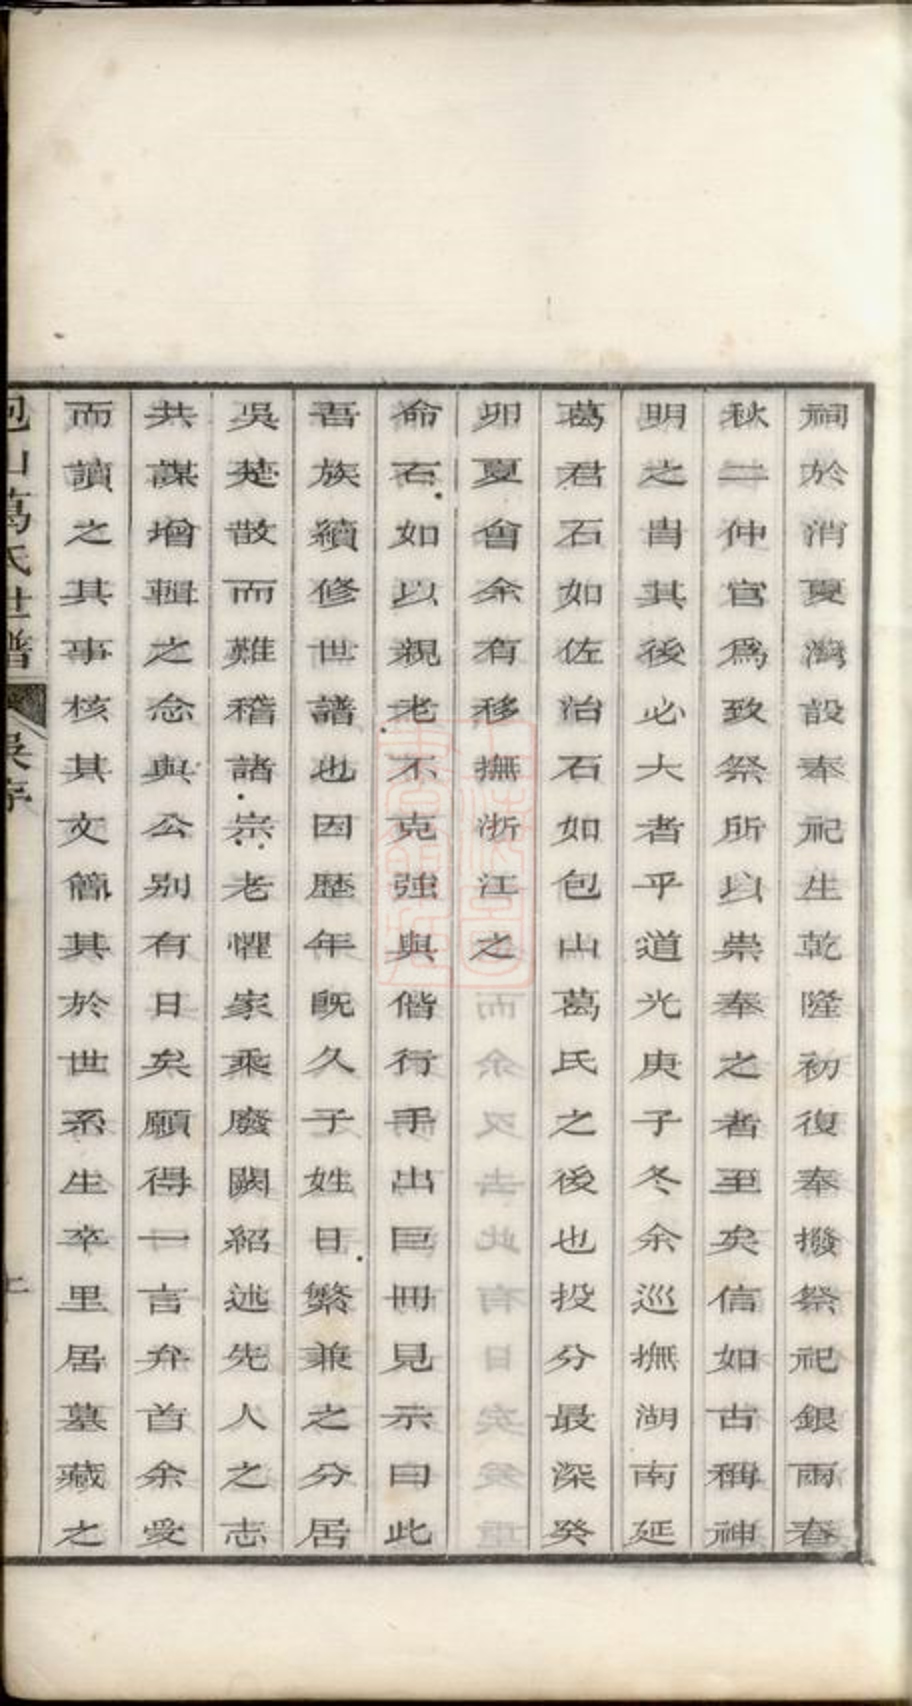 祠於消夏灣設奉祀生乾隆初復奉撥祭祀銀兩春
秋二仲官爲致祭所以崇奉之者至矣信如古稱神
明之胄其後必大者乎道光庚子冬余巡撫湖南延
葛君石如佐治石如包山葛氏之後也投分最深癸
卯夏會余有移撫浙江之
命石如以親老不克強與偕行手出巨冊見示曰此
吾族續修世譜也因歷年既久子姓日繁兼之分居
吳楚散而難稽諸宗老懼家乘廢闕紹述先人之志
共謀增輯之念與公别有日矣願得一言弁首余受
而讀之其事核其文簡其於世系生卒里居墓藏之
包山葛氏世譜
吳序